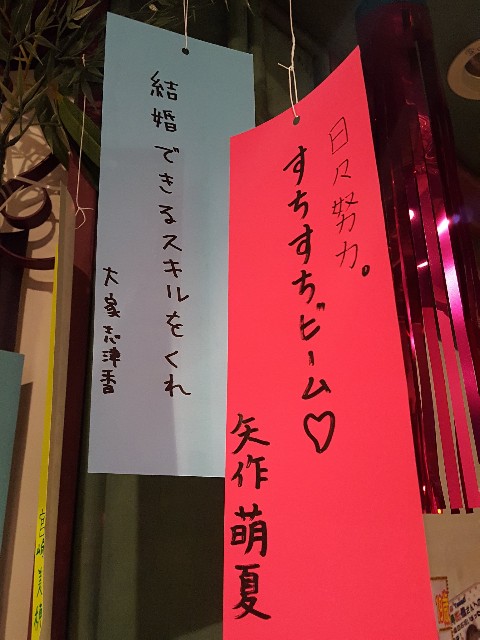 日々努力。
すちすちビーム♡
矢作萌夏
結婚できるスキルをくれ
大家志津香
宮崎美穂